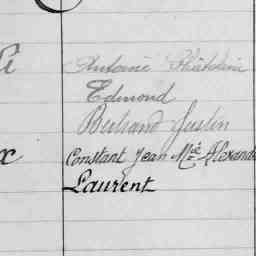 Antoine
Edmond
Bertrand Justin
Constant Jean M.ie Alexand
Laurent